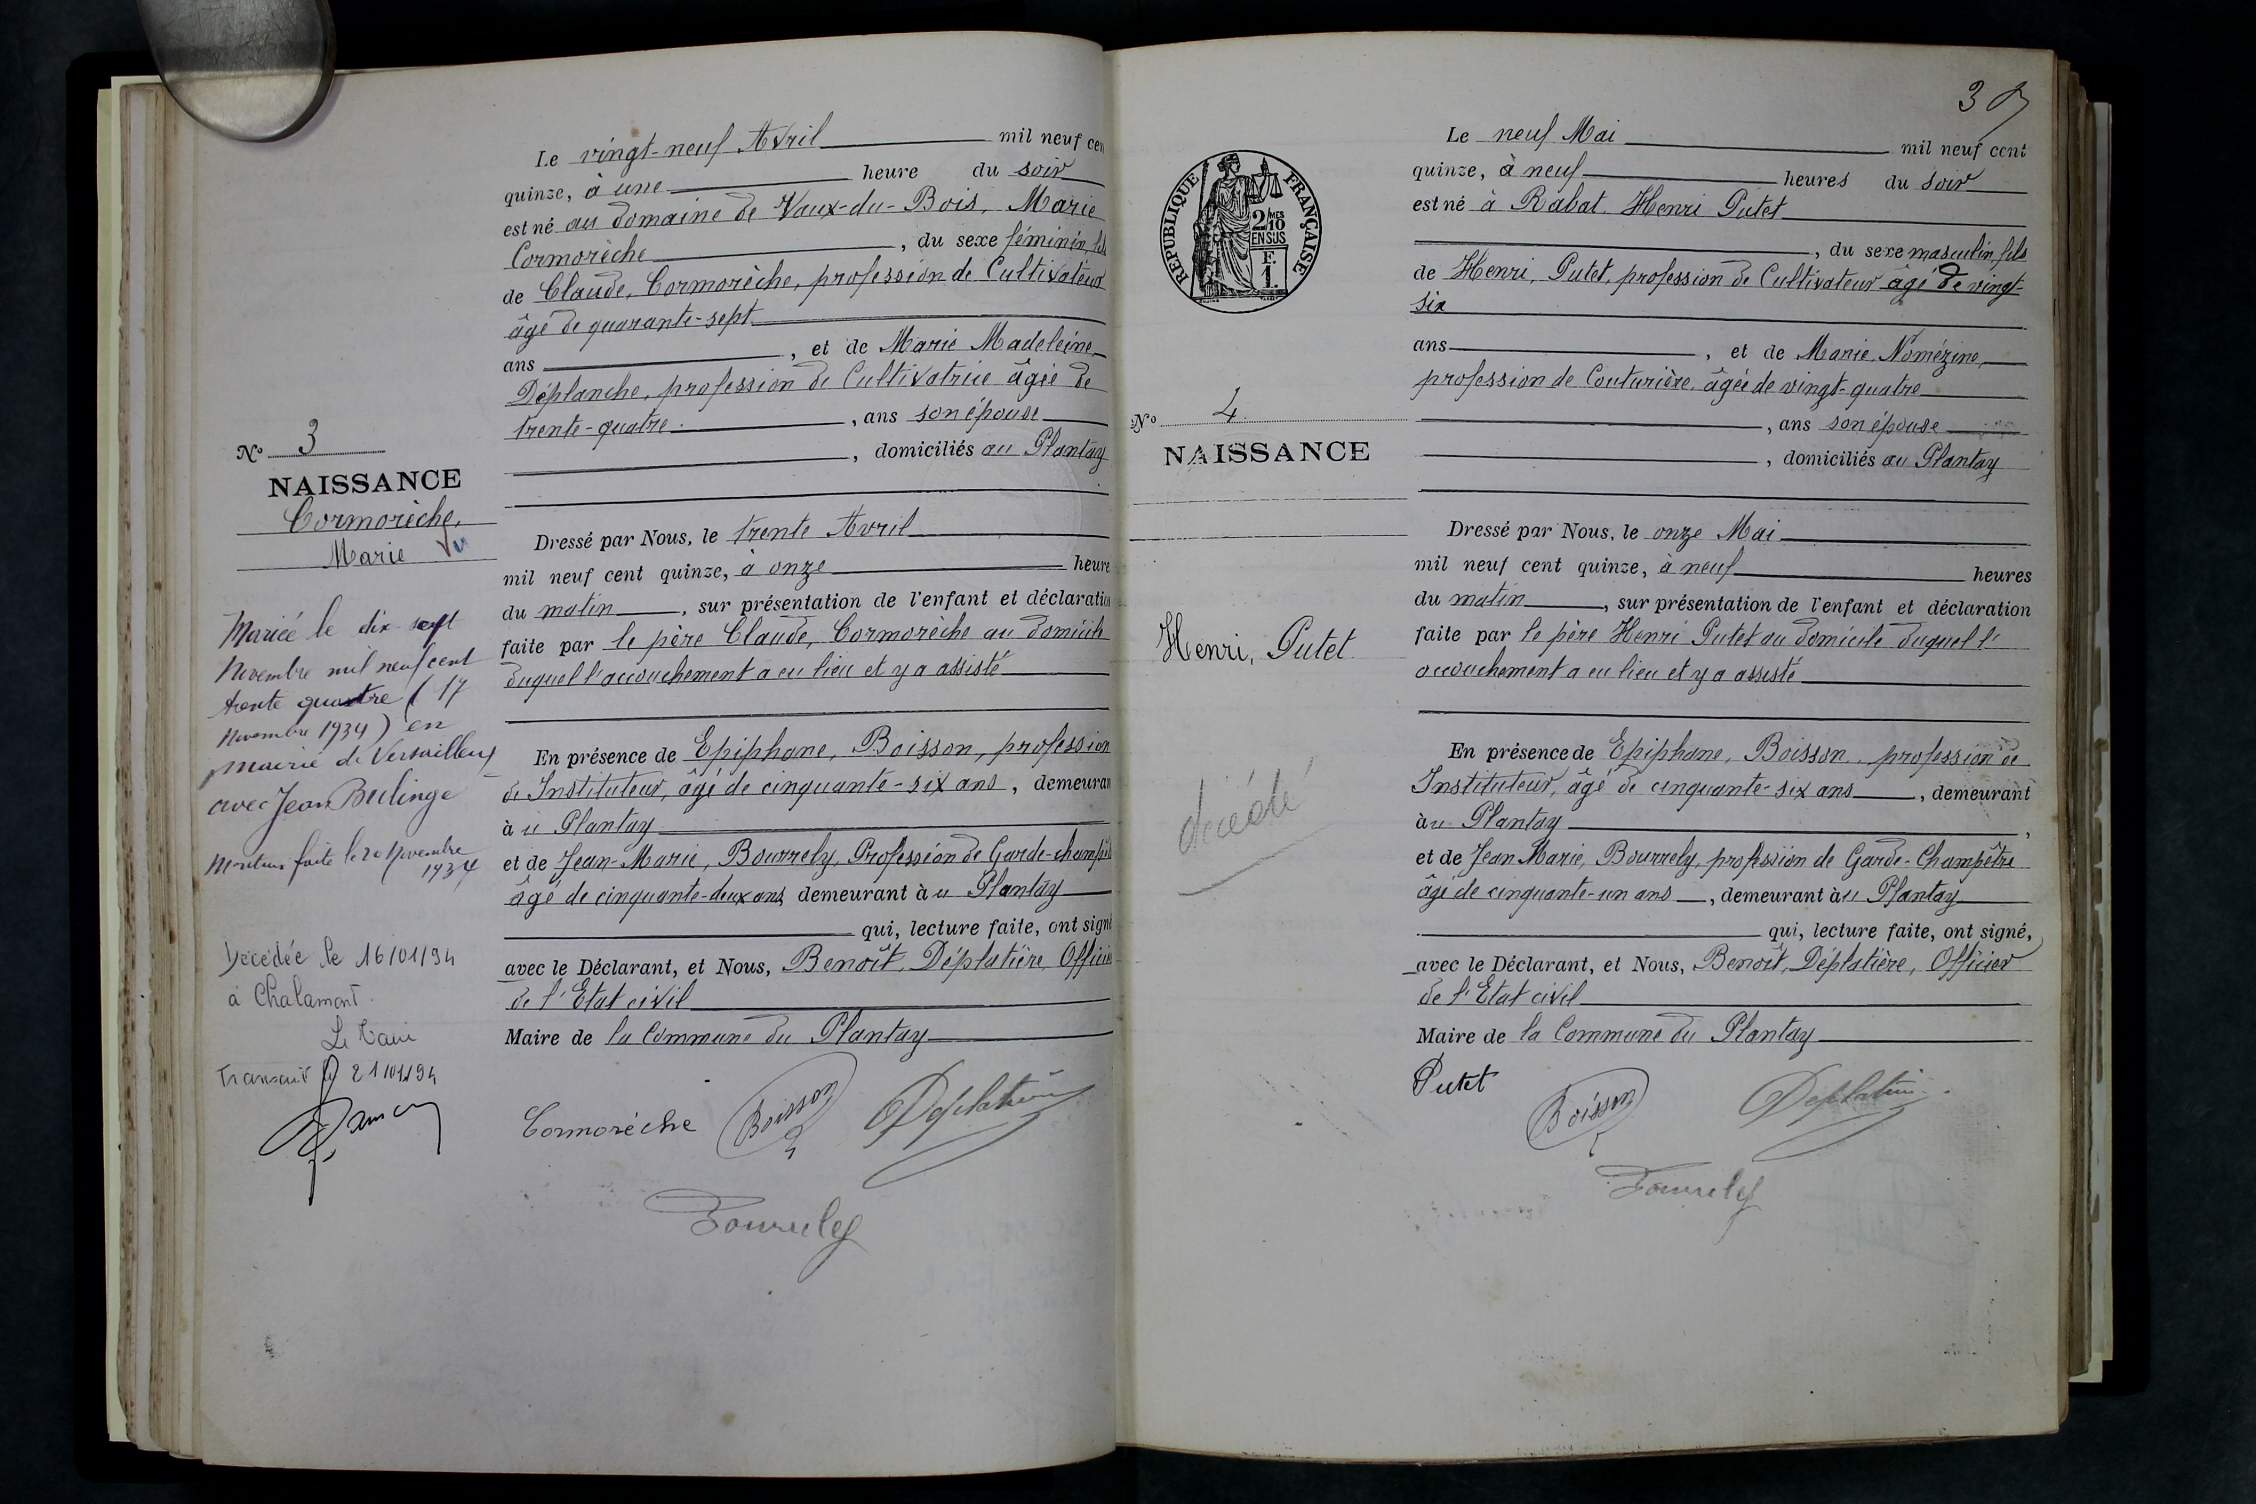 Le vingt-neuf Avril mil neuf cen
quinze, à une heure du soir
est né au domaine de Vaux-du-Bois, Marie
Cormorèche, du sexe féminin, fils
de Claude, Cormorèche, profession de Cultivateur
âgé de quarante-sept
ans, et de Marie Madeleine
Déplanche, profession de Cultivatrice âgée de
trente-quatre, ans son épouse
, domiciliés au Plantay
Nº 3
NAISSANCE
Cormorèche,
Marie
Dressé par Nous, le trente Avril
mil neuf cent quinze, à onze heure
du matin, sur présentation de l'enfant et déclaration
faite par le père Claude, Cormorèche au domicile
duquel l'accouchement a eu lieu et y a assisté
En présence de Epiphane, Boisson, profession
de Instituteur, âgé de cinquante-six ans, demeuran
à u Plantay
et de Jean-Marie, Bourrely, Profession de Garde-champêt
âgé de cinquante-deux ans, demeurant à u Plantay
qui, lecture faite, ont signé
avec le Déclarant, et Nous, Benoît, Déplatière, Officier
de l'Etat civil
Maire de la Commune du Plantay
Cormorèche Boisson Déplatière
Bourrely
Mariée le dix sept
Novembre mil neuf cent
trente quatre (17
Novembre 1934) en
mairie de Versailleux
avec Jean Berlinge
Mention faite le 20 Novembre
1934
Décédée le 16/01/94
à Chalamont.
Le Maire
Transcrit le 21/01/94
3
Le neuf Mai mil neuf cent
quinze, à neuf heures du soir
est né à Rabat Henri Putet
, du sexe masculin, fils
de Henri, Putet, profession de Cultivateur âgé de vingt-
six
ans, et de Marie, Nomézine,
profession de Couturière, âgée de vingt-quatre
, ans son épouse
, domiciliés au Plantay
RÉPUBLIQUE FRANÇAISE
2/10 MES
EN SUS
F.
1.
Nº 4
NAISSANCE
Henri, Putet
décédé
Dressé par Nous, le onze Mai
mil neuf cent quinze, à neuf heures
du matin, sur présentation de l'enfant et déclaration
faite par le père Henri Putet au domicile duquel l'
accouchement a eu lieu et y a assisté
En présence de Epiphane, Boisson, profession de
Instituteur, âgé de cinquante-six ans, demeurant
à u Plantay,
et de Jean Marie, Bourrely, profession de Garde-Champêtre
âgé de cinquante-un ans, demeurant à u Plantay
qui, lecture faite, ont signé,
avec le Déclarant, et Nous, Benoît, Déplatière, Officier
de l'Etat civil
Maire de la Commune du Plantay
Putet Boisson Déplatière
Bourrely